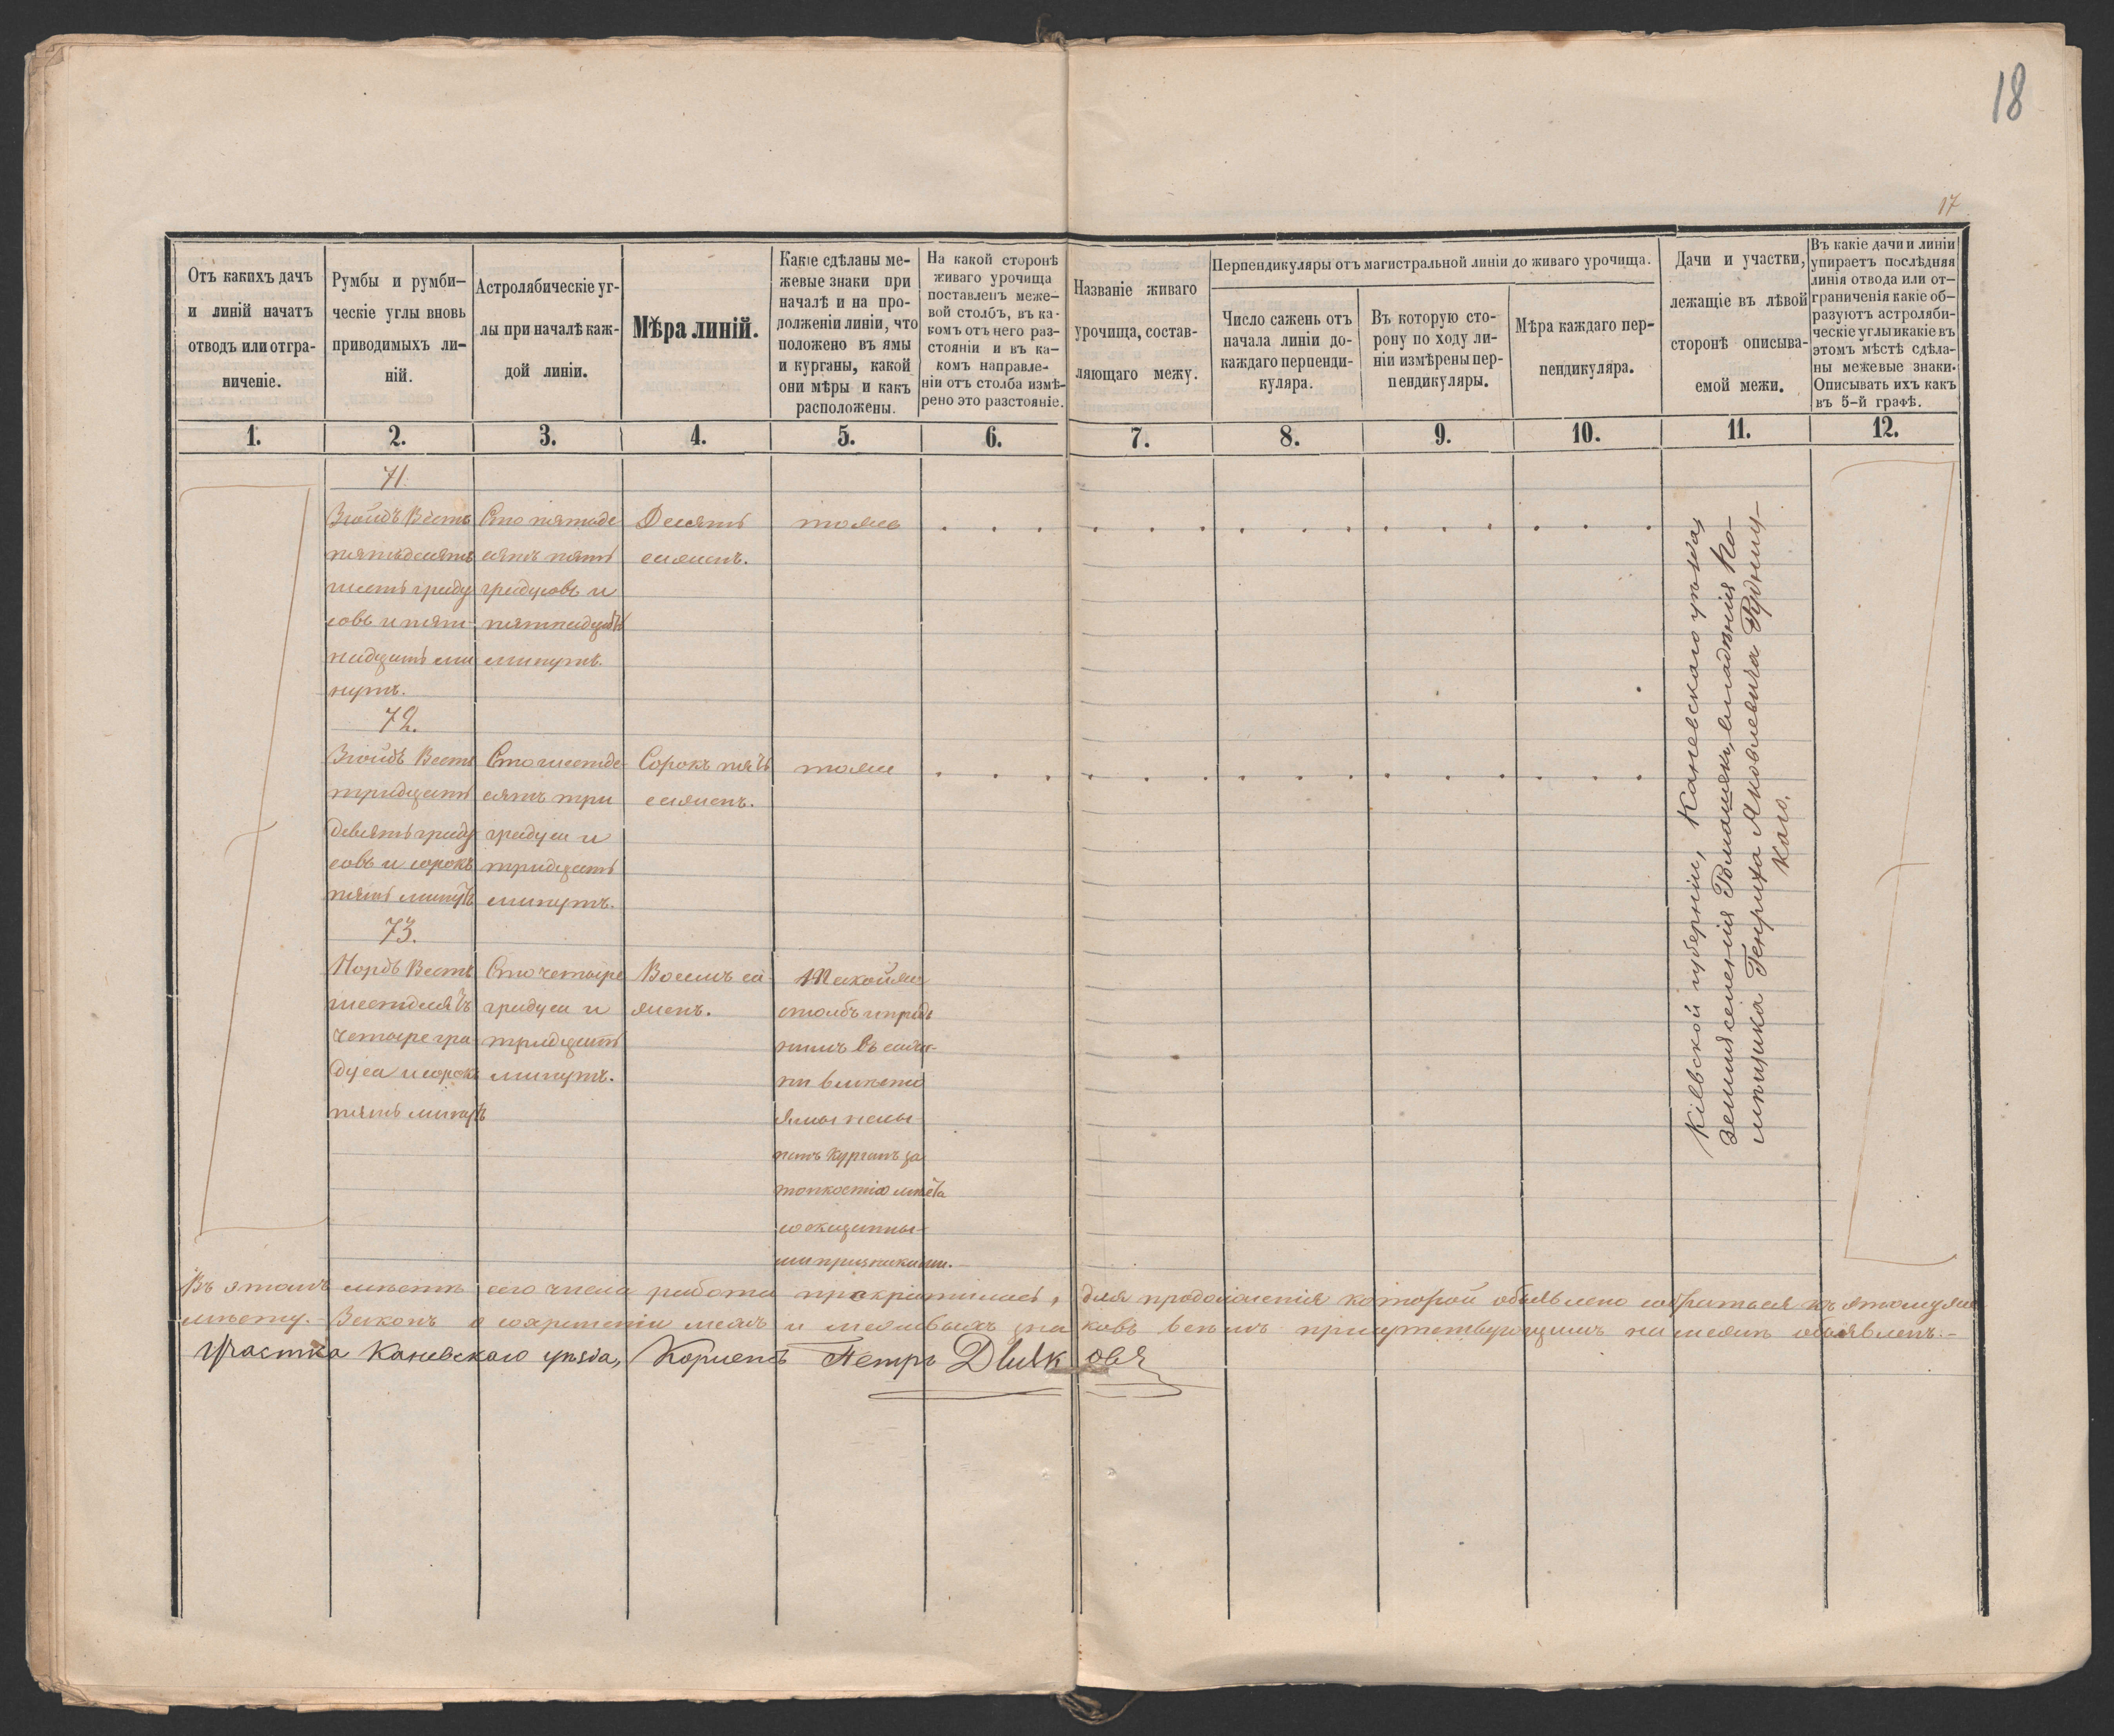 18
17
Отъ какихъ дачъ
и линій начатъ
отводъ или отгра-
ниченіе.
Румбы и румби-
ческіе углы вновь
приводимыхъ ли-
ній.
Астролябическіе уг-
лы при началѣ каж-
дой линіи.
Мѣра линій.
Какіе сдѣланы ме-
жевые знаки при
началѣ и на про-
долженіи линіи, что
положено въ ямы
и курганы, какой
они мѣры и какъ
расположены.
На какой сторонѣ
живаго урочища
поставленъ меже-
вой столбъ, въ ка-
комъ отъ него раз-
стояніи и въ ка-
комъ направле-
ніи отъ столба измѣ-
рено это разстояніе.
Названіе живаго
урочища, состав-
ляющаго межу.
Перпендикуляры отъ магистральной линіи до живаго урочища.
Число сажень отъ
начала линіи до
каждаго перпенди-
куляра.
Въ которую сто-
рону по ходу ли-
ніи измѣрены пер-
пендикуляры.
Мѣра каждаго пер-
пендикуляра.
Дачи и участки,
лежащіе въ лѣвой
сторонѣ описыва-
емой межи.
Въ какіе дачи и линіи
упираетъ послѣдняя
линія отвода или от-
граниченія какіе об-
разуютъ астроляби-
ческіе углы и какіе въ
этомъ мѣстѣ сдѣла-
ны межевые знаки.
Описывать ихъ какъ
въ 5-й графѣ.
1. 2. 3. 4. 5. 6. 7. 8. 9. 10. 11. 12.
71.
Зюйдъ Вестъ
пятьдесятъ
шесть граду
совъ и пят
надцать ми
нутъ.
Сто пятьде
сятъ пять
градусовъ и
пятнадцать
минутъ.
Десять
сажень.
тоже
72.
Зюйдъ Вестъ
тридцать
девять граду
совъ и сорокъ
пять минутъ
Сто шестьде
сятъ три
градуса и
тридцать
минутъ.
Сорокъ пять
сажень.
тоже
73.
Нордъ Вестъ
шестьдесятъ
четыре гра
дуса и сорокъ
пять минутъ
Сто четыре
градуса и
тридцать
минутъ.
Восемь са
жень.
Такой же
столбъ и предъ
нимъ въ сажа-
ни вмѣсто
ямы насы
панъ курганъ за
топкостію мѣста
со сказанны-
ми признаками.
Кіевской губерніи, Каневскаго уѣзда,
земли селенія Ромашекъ, владѣнія По-
мѣщика Генриха Яковлевича Рудниц-
каго.
Въ этомъ мѣстѣ сего числа работа прекратилась, для продолженія которой объявлено собраться къ этому же
мѣсту. Законъ о сохраненіи межъ и межевыхъ знаковъ всѣмъ присутствующимъ на межѣ объявленъ.
Участка Каневскаго уѣзда, Петръ